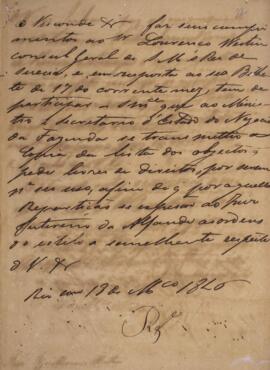 O Visconde & faz seus cumpri
mentos ao Sr Lourenço Westin
consul Geral de S M é Rei de
Suecia, e, em resposta ao seu Bilhe
te de 17 do corrente mez, tem de
participar a Smce que ao Minis
tro e Secretario d'Estado dos Negocios
da Fazenda se transmitte a
Copia da lista dos objectos, q
pede livres de direitos, por serem
pa seu uso, afim de q por aquella
Repartição se expessão ao Juiz
da Alfandega as ordens
do estilo a semelhante respeito
O V. &
Rio em 19 de Mço 1826